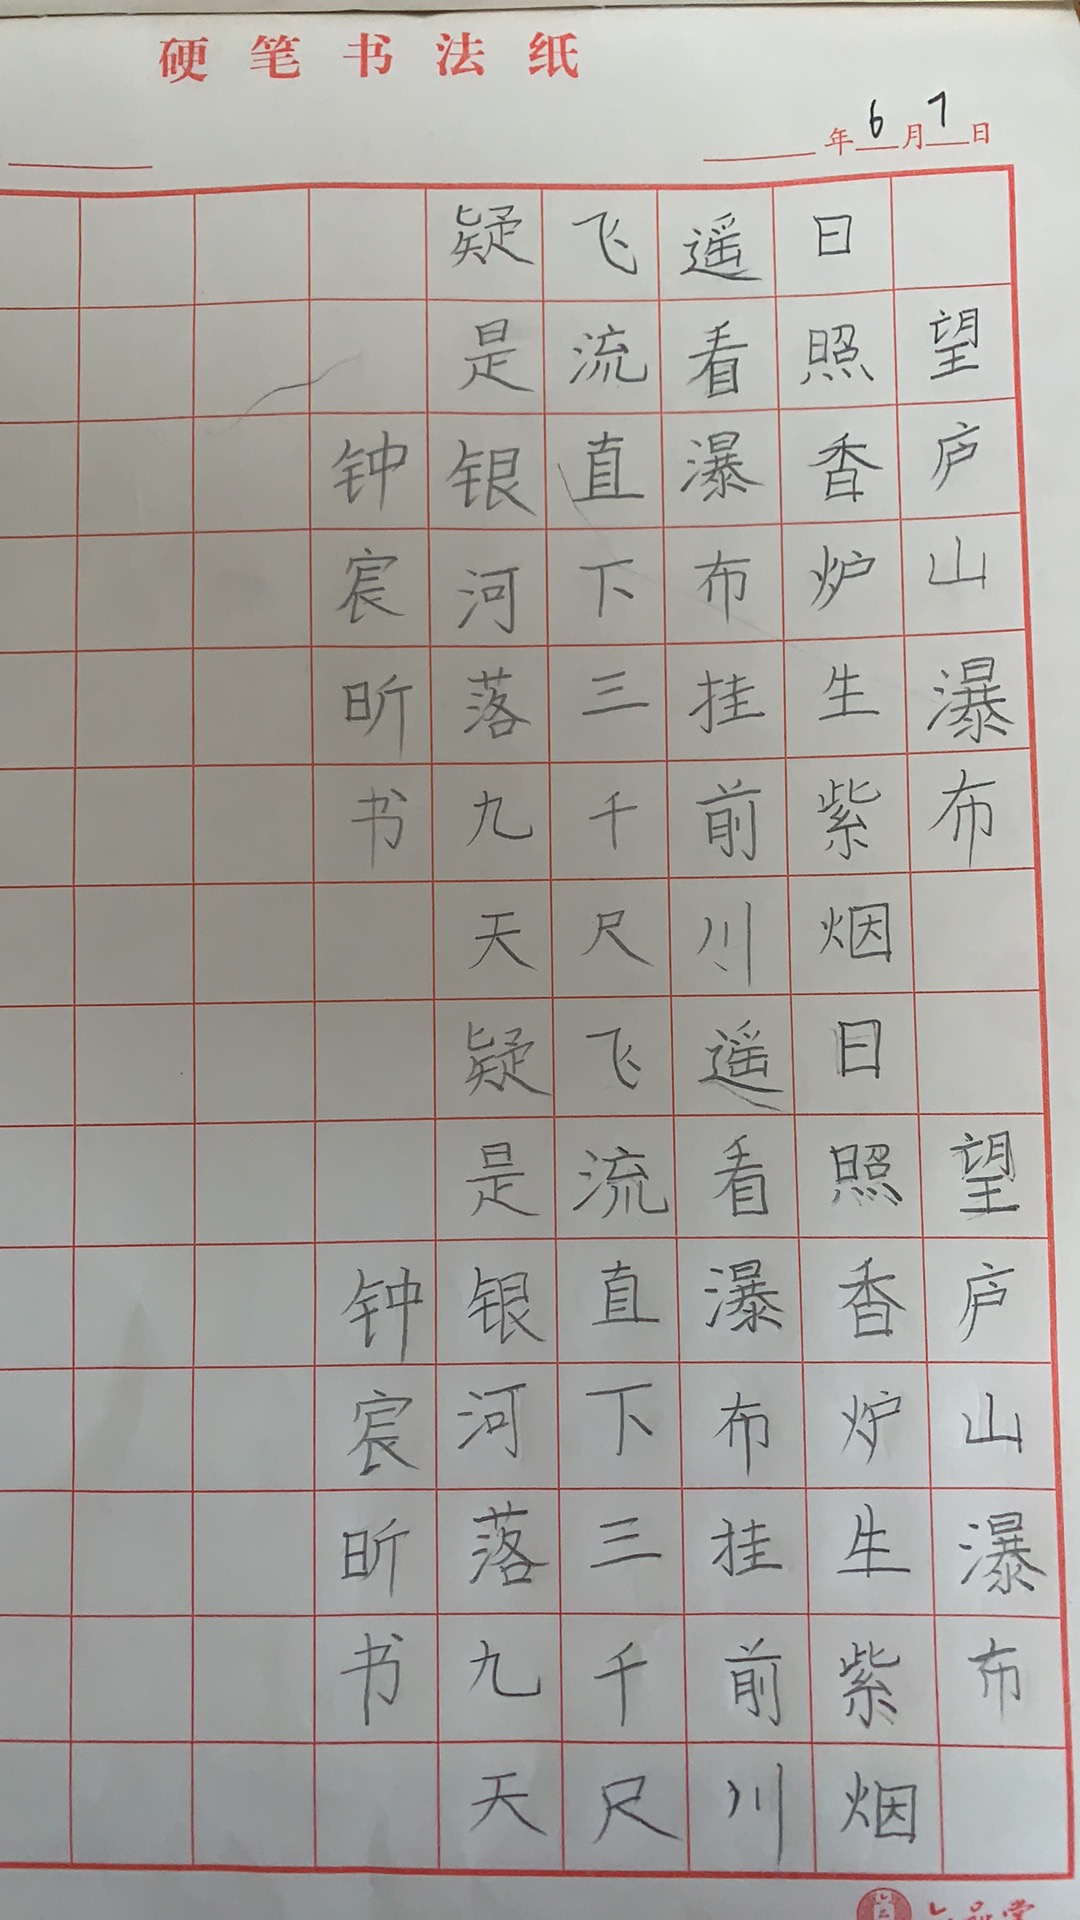 硬笔书法纸
年6月7日
望庐山瀑布
日照香炉生紫烟
遥看瀑布挂前川
飞流直下三千尺
疑是银河落九天
钟宸昕书
望庐山瀑布
日照香炉生紫烟
遥看瀑布挂前川
飞流直下三千尺
疑是银河落九天
钟宸昕书